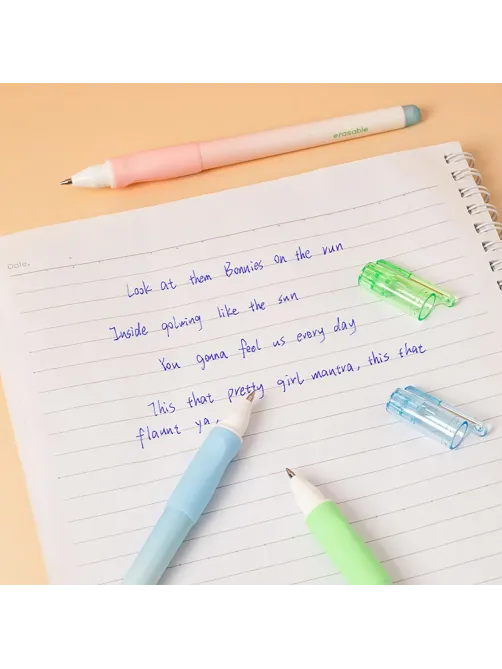 erasable
Date.
Look at them Bonnies on the run
Inside golwing like the sun
You gonna feel us every day
This that pretty girl mantra, this that
flaunt ya,